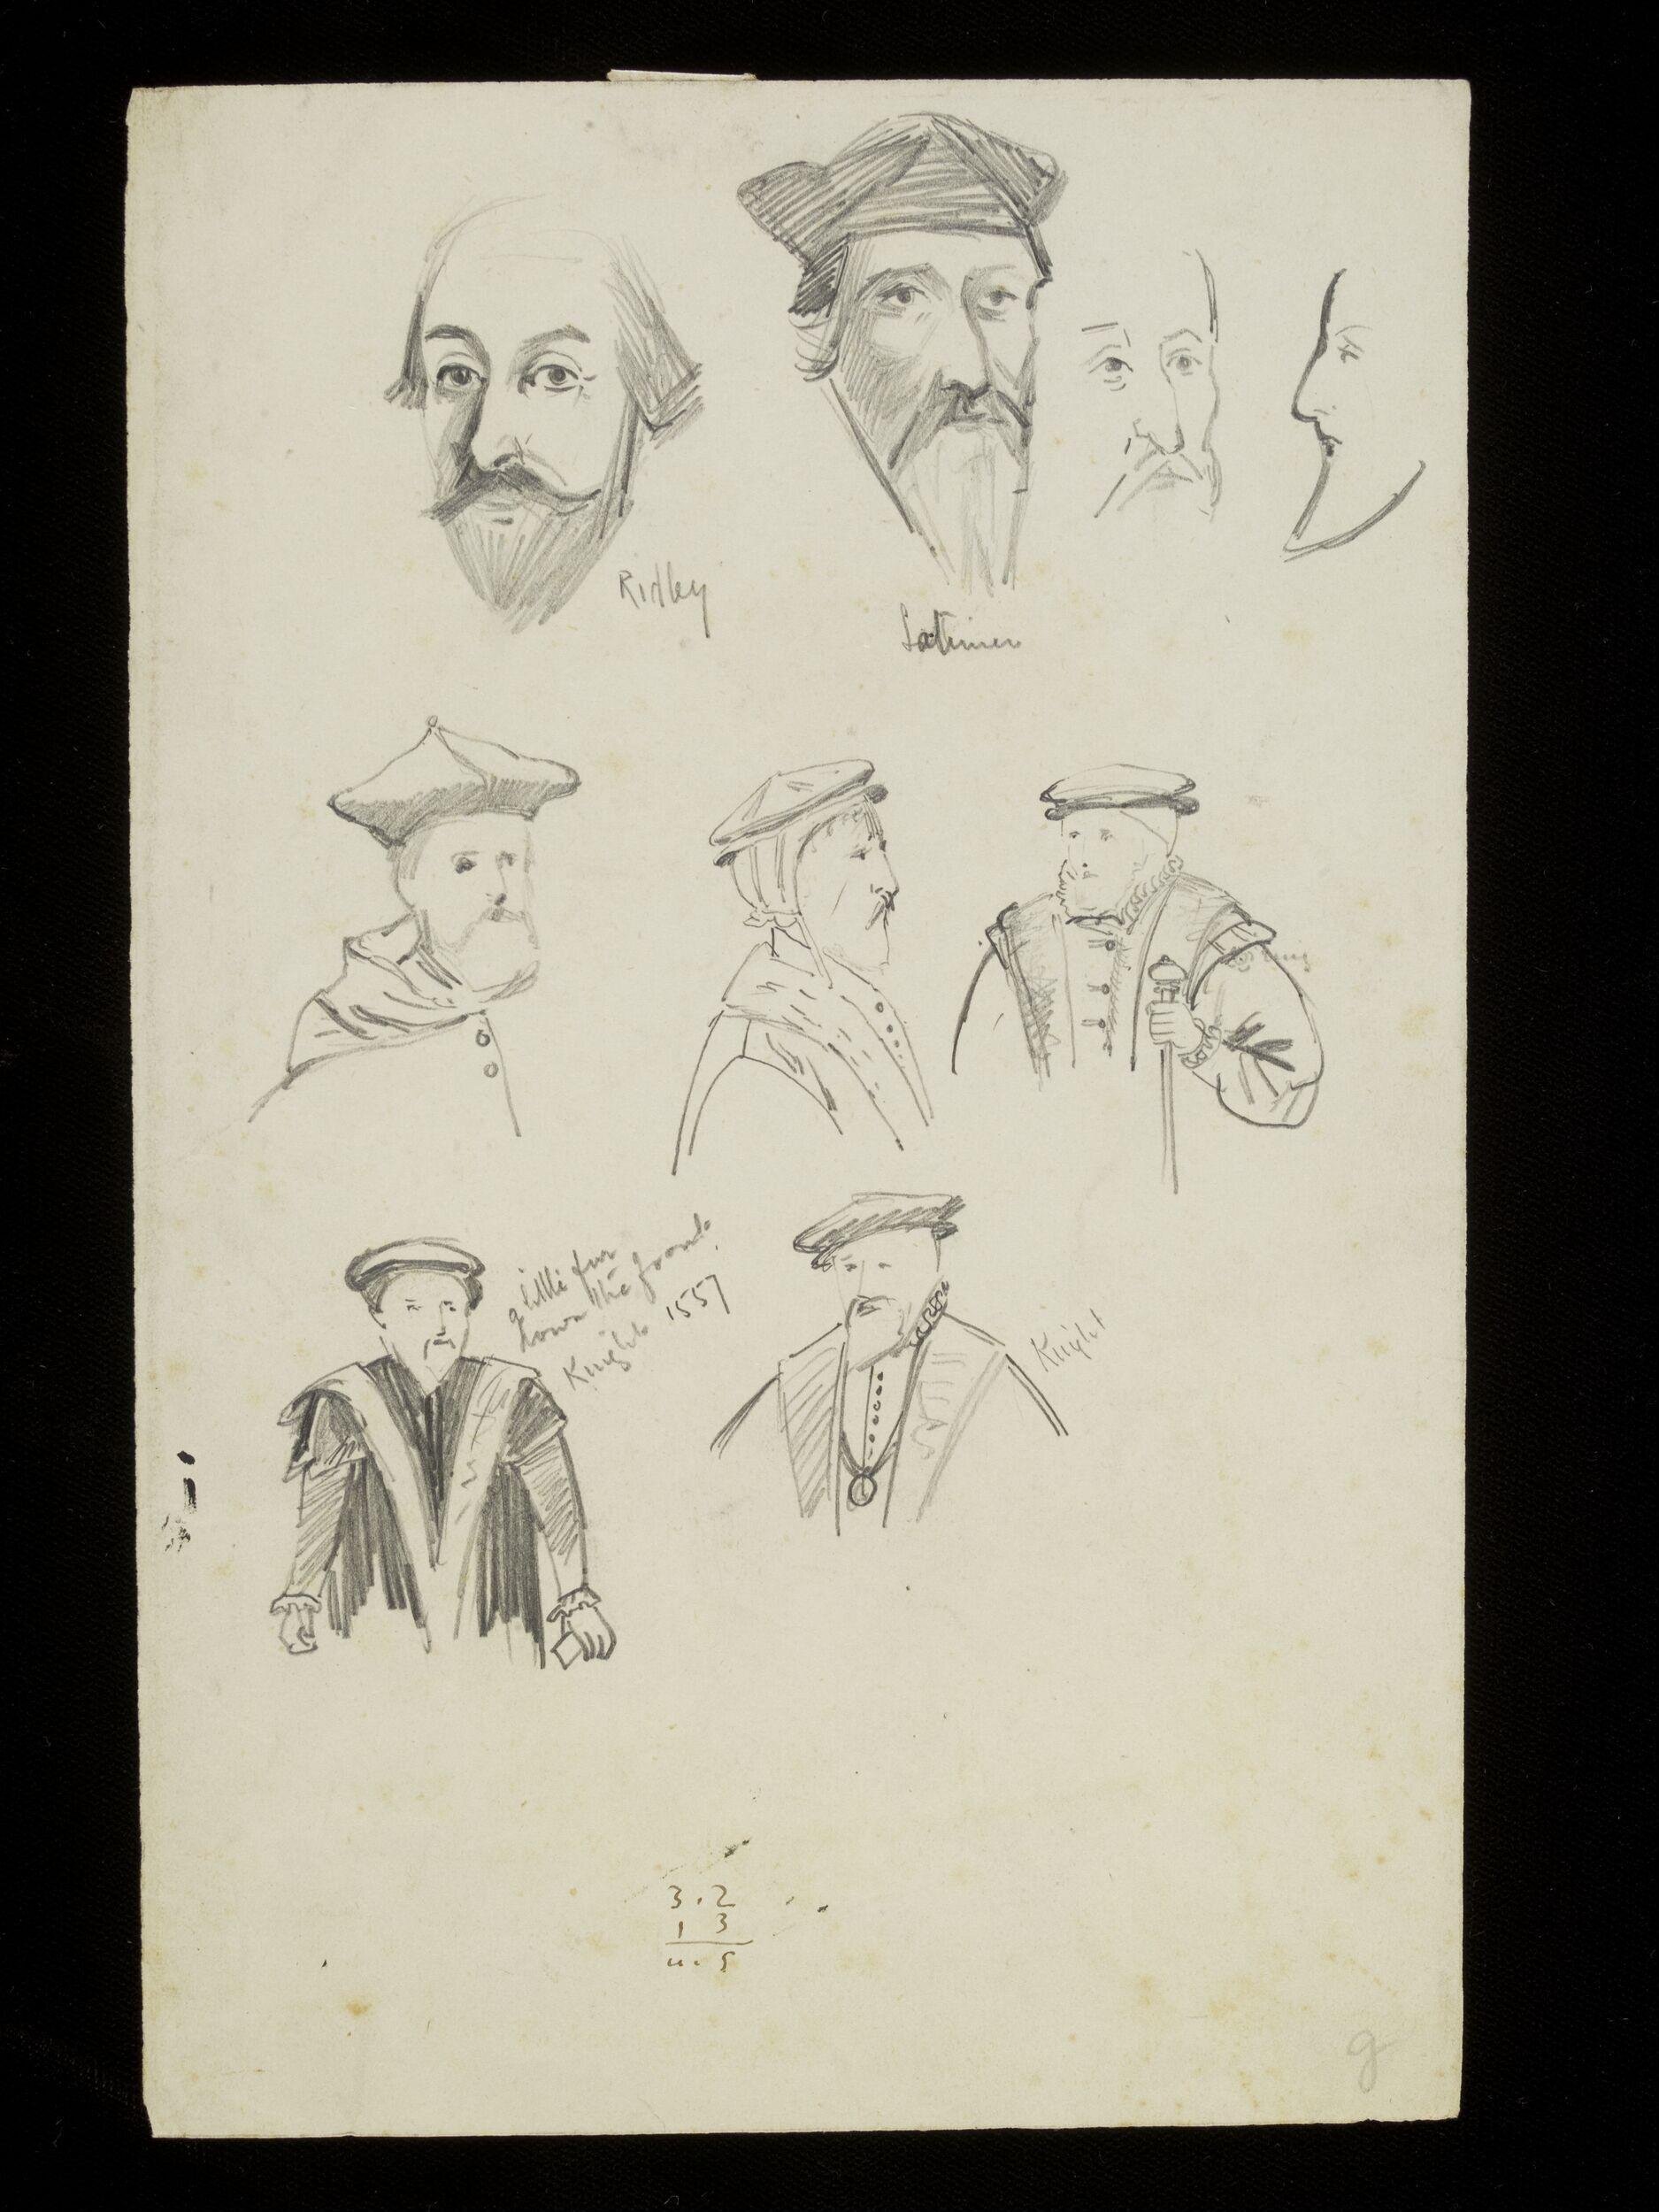 Ridley
Latimer
a little fur
down the front.
Knight 1557
Knight
3.2
1 3
4.5
g